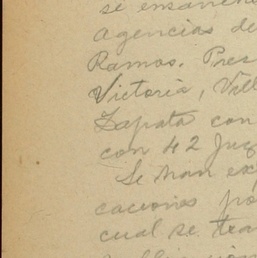 se ensanch
Agencias de
Ramos. Pres
Victoria, Vill
Zapata con
con 42 Juz
Se han ex
caciones po
cual se tra